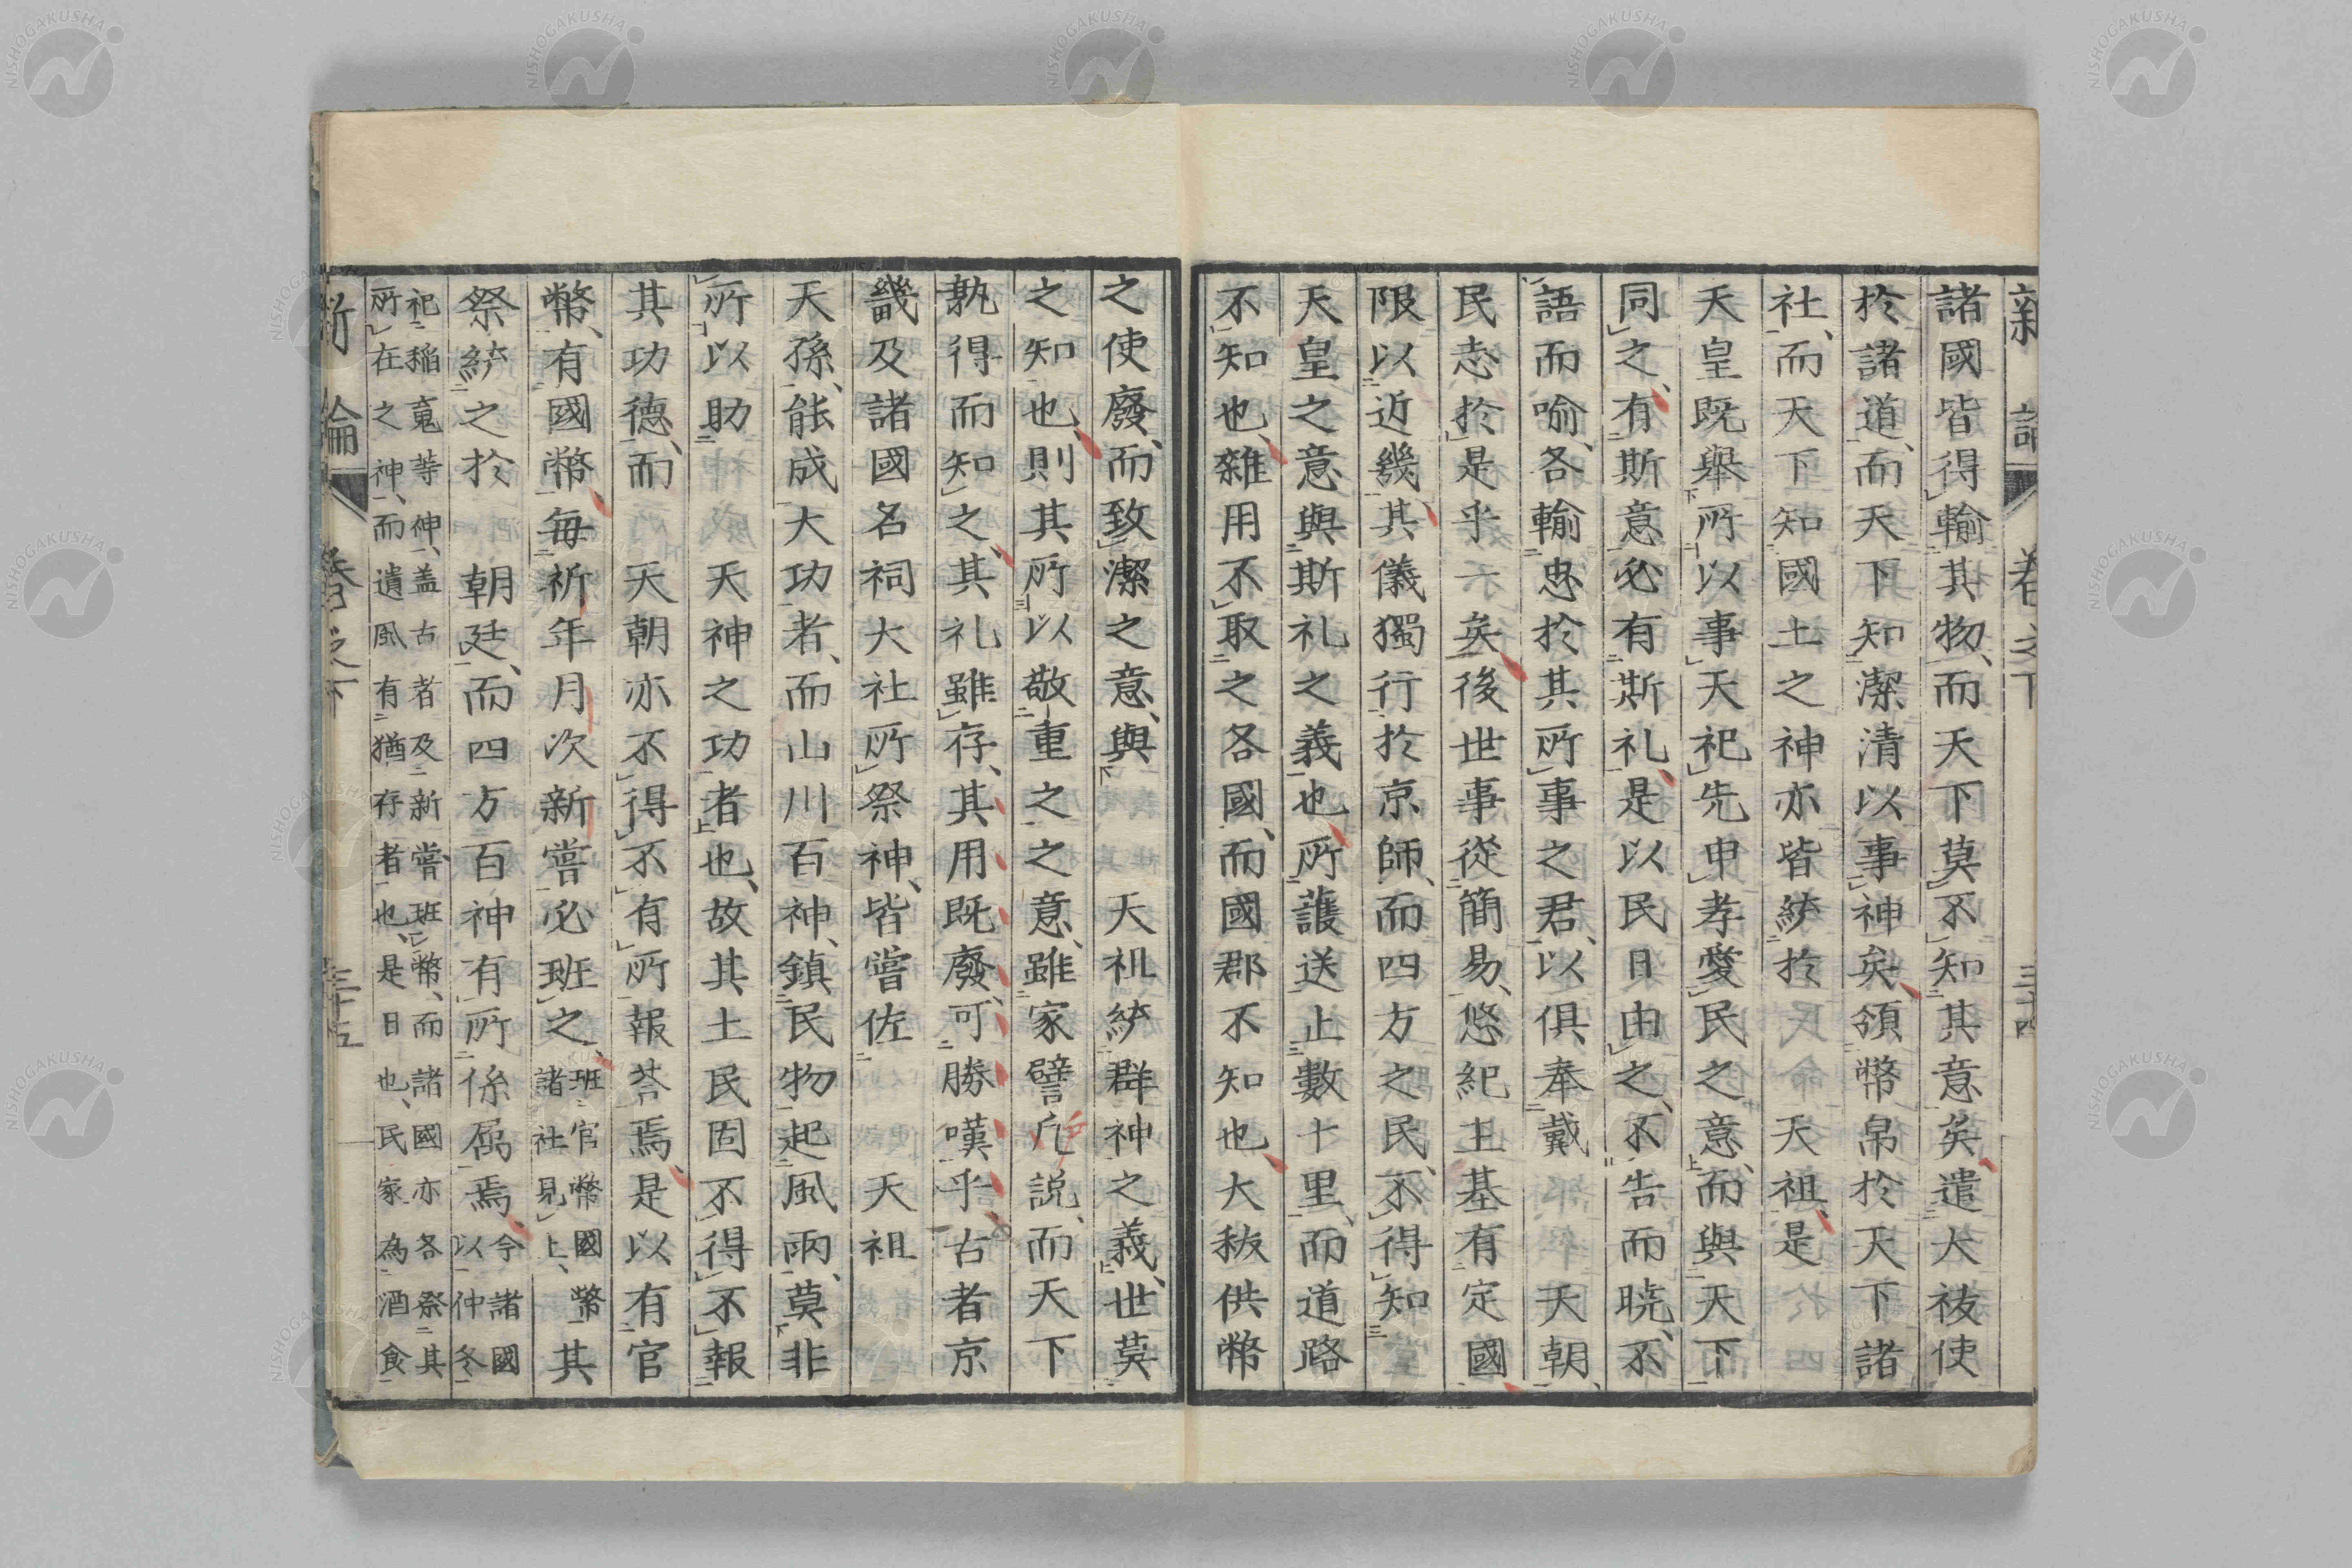 新論 卷之下 三十四
諸國皆得輸其物、而天下莫不知其意矣、遣大祓使
於諸道、而天下知潔清以事神矣、頒幣帛於天下諸
社、而天下知國土之神亦皆統於 天祖、是
天皇既舉所以事天祀先申孝愛民之意、而與天下
同之、有斯意必有斯礼、是以民日由之、不告而曉、不
語而喻、各輸忠於其所事之君、以俱奉戴 天朝、
民志於是乎一矣、後世事從簡易、悠紀主基有定國
限以近畿、其儀獨行於京師、而四方之民、不得知
天皇之意與斯礼之義也、所護送止數十里、而道路
不知也、雜用不取之各國、而國郡不知也、大秡供幣
之使廢、而致潔之意、與 天祖統群神之義、世莫
之知也、則其所以敬重之之意、雖家譬戶説、而天下
孰得而知之、其礼雖存、其用既廢、可勝嘆乎、古者京
畿及諸國名祠大社所祭神、皆嘗佐 天祖
天孫、能成大功者、而山川百神、鎮民物起風雨、莫非
所以助 天神之功者也、故其土民固不得不報
其功德、而 天朝亦不得不有所報荅焉、是以有官
幣、有國幣、每祈年月次新嘗必班之、班官幣國幣
諸社見上、其
祭統之於 朝廷、而四方百神有所係属焉、今諸國
以仲冬
祀稲䰟等神、盖古者及新嘗班幣、而諸國亦各祭其
所在之神、而遺風有猶存者也、是日也、民家為酒食
新論 卷之下 三十五
NISHOGAKUSHA
NISHOGAKUSHA
NISHOGAKUSHA
NISHOGAKUSHA
NISHOGAKUSHA
NISHOGAKUSHA
NISHOGAKUSHA
NISHOGAKUSHA
NISHOGAKUSHA